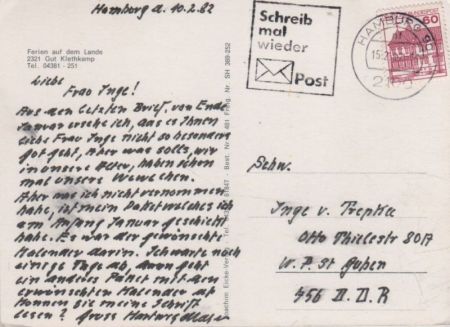 Hamburg d. 10.2.82
Ferien auf dem Lande
2321 Gut Klethkamp
Tel. 04381 - 251
Liebe
Frau Inge!
Aus den letzten Brief. von Ende
Januar ersehe ich, das es Ihnen
liebe Frau Inge nicht so besonders
got geht, aber was solls, wir
in unsere Alter, haben schon
mal unsere Wewechen.
Aber was ich nicht vernommen
habe, ist mein Paket welches ich
am Anfang Januar geschickt
habe. Es war der gewünschte
Kalender darin. Ich warte noch
einige Tage ab, dann geht
ein anderes Paket mit dem
erwünschten Kalender ab
können sie meine Schrift
lesen? Gruss Hartwig
Schreib
mal
wieder
Post
HAMBURG
60
Schw.
Inge v. Trepka
Otto Thielestr 80A
W. P. St Guben
756 D. D. R